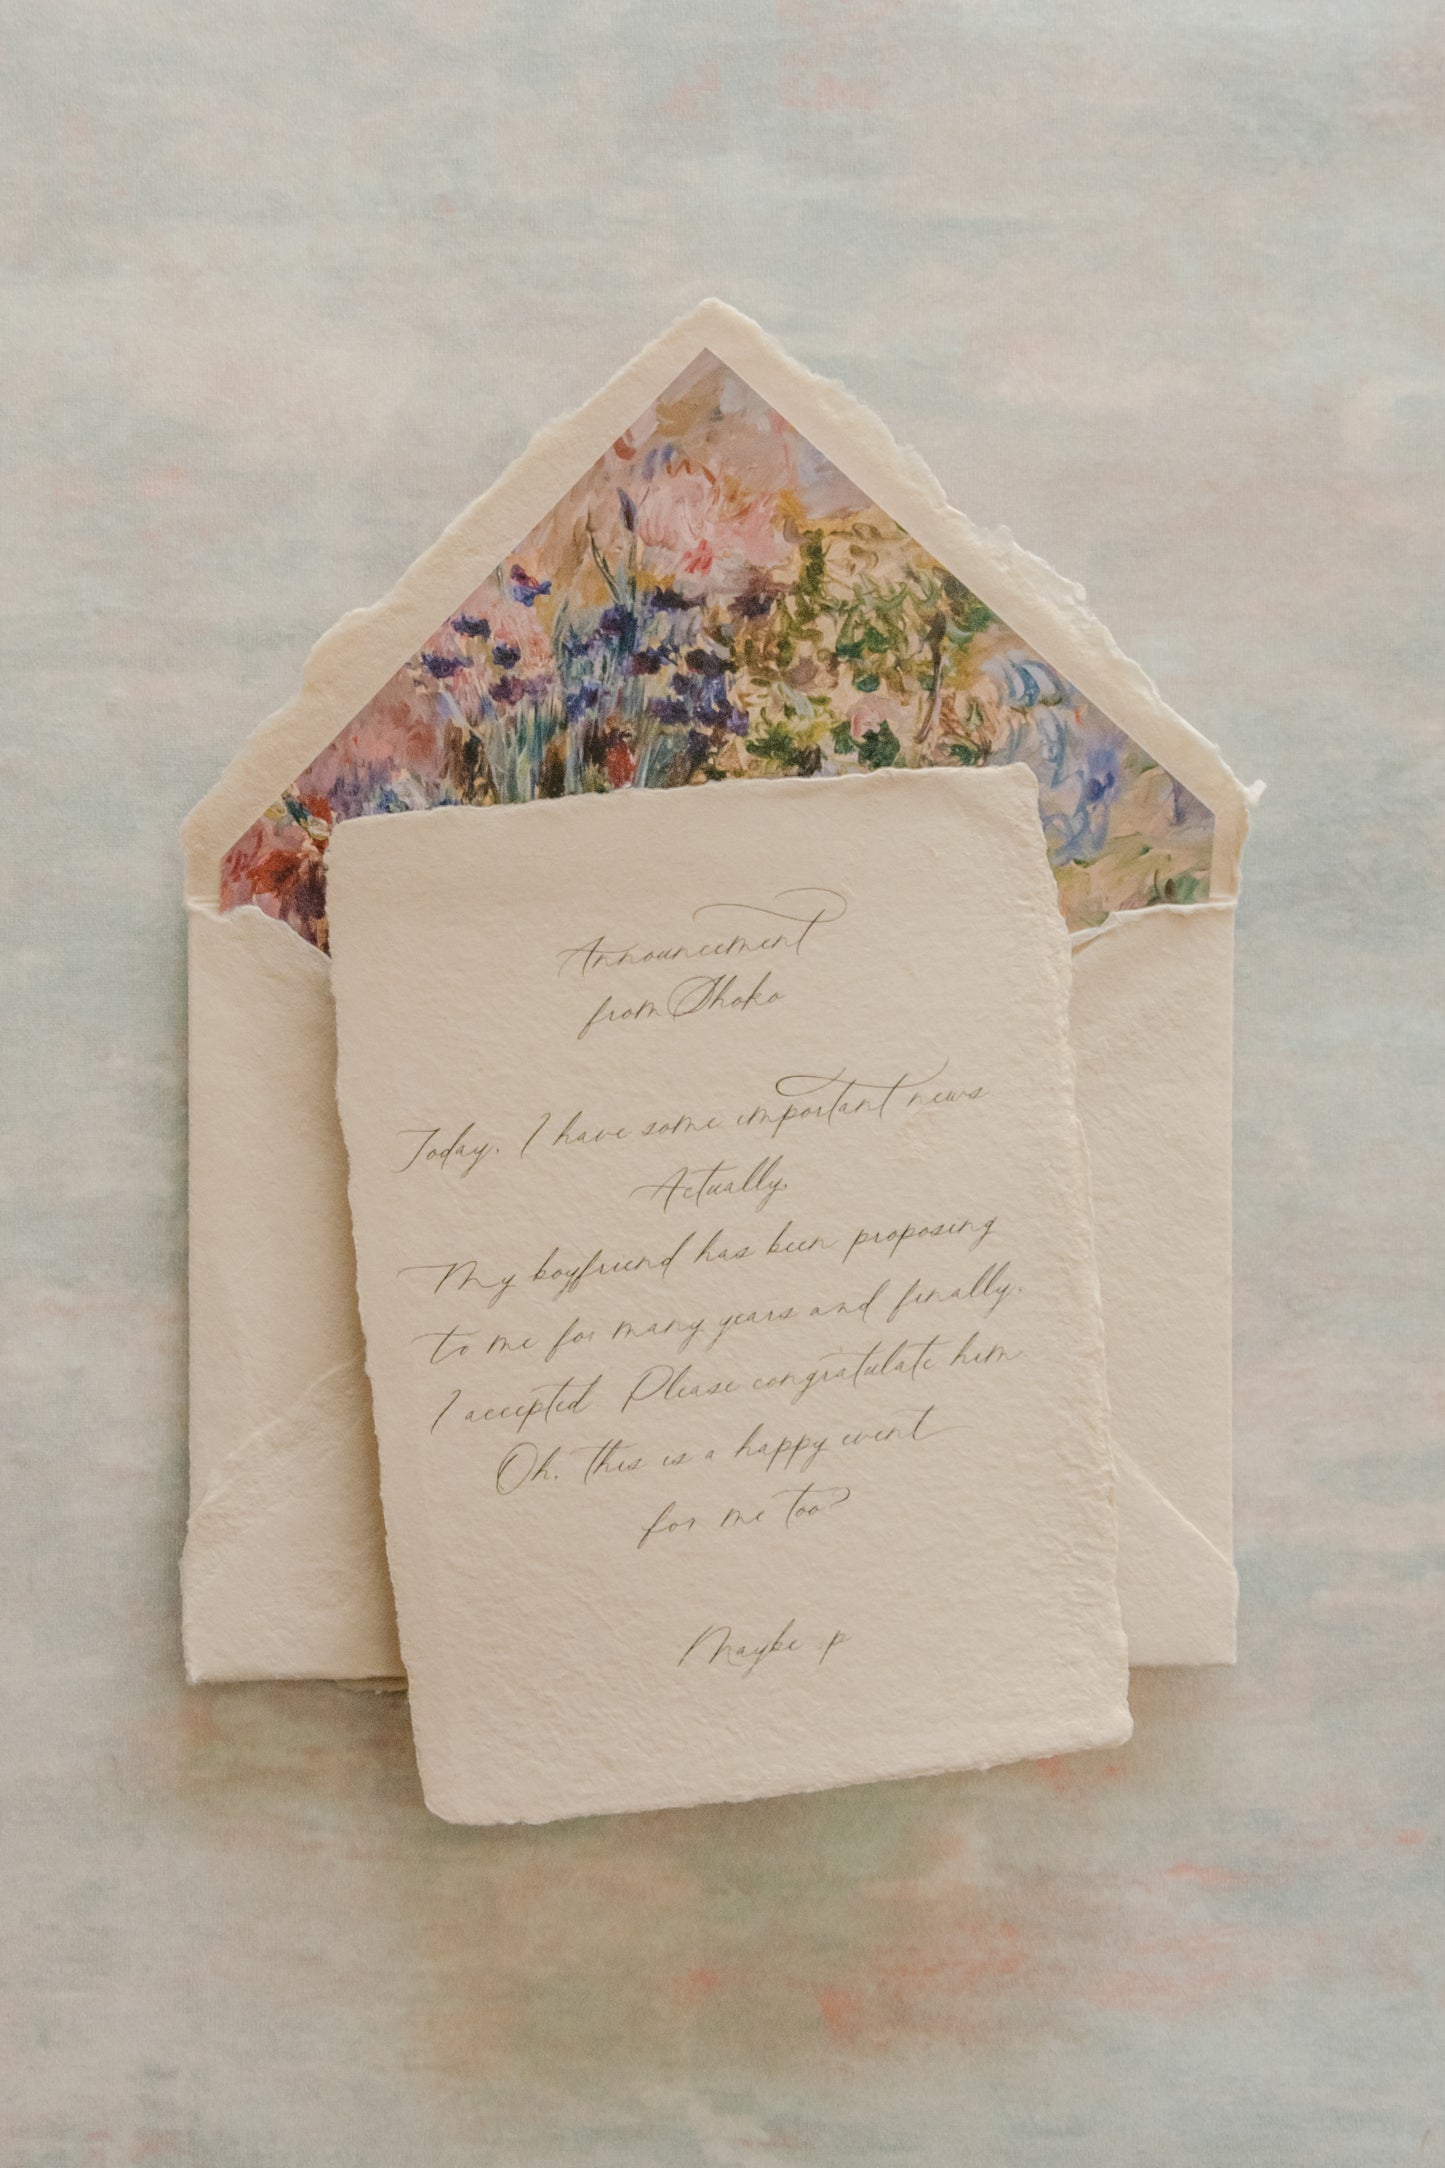 Announcement
from Shoko
Today, I have some important news
Actually,
My boyfriend has been proposing
to me for many years and finally,
I accepted Please congratulate him
Oh, this is a happy event
for me too?
Maybe p